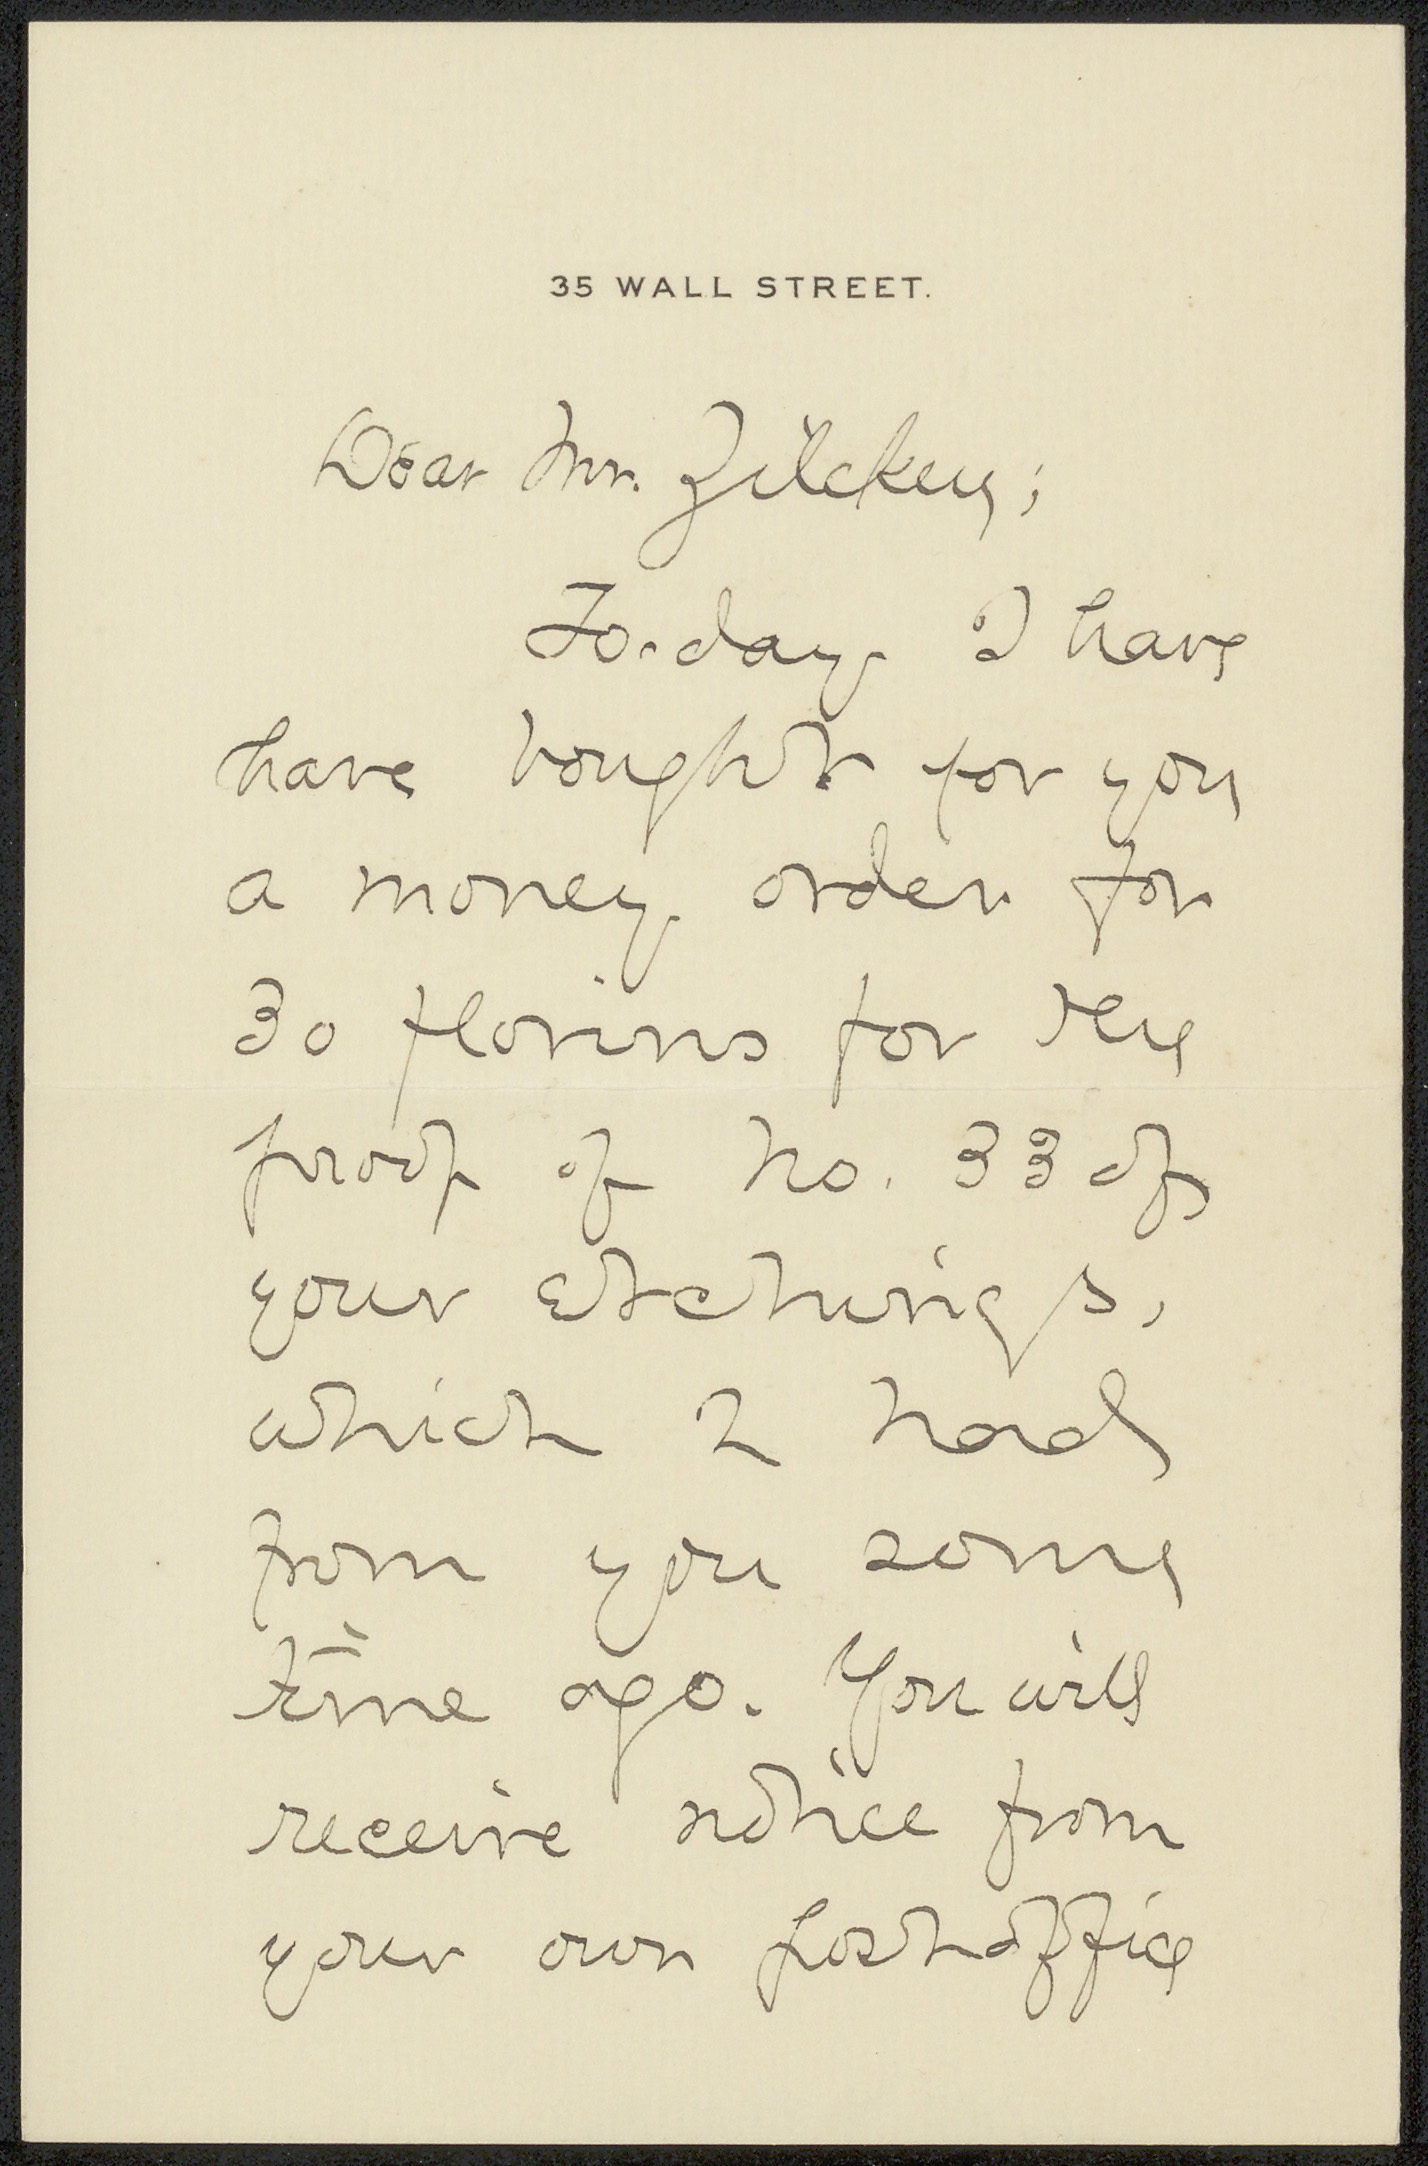 35 WALL STREET.
Dear Mr. Zilcken;
To-day I have
have bought for you
a money order for
30 florins for the
proof of No. 33 of
your etchings,
which I had
from you some
time ago. You will
receive notice from
your own postoffice